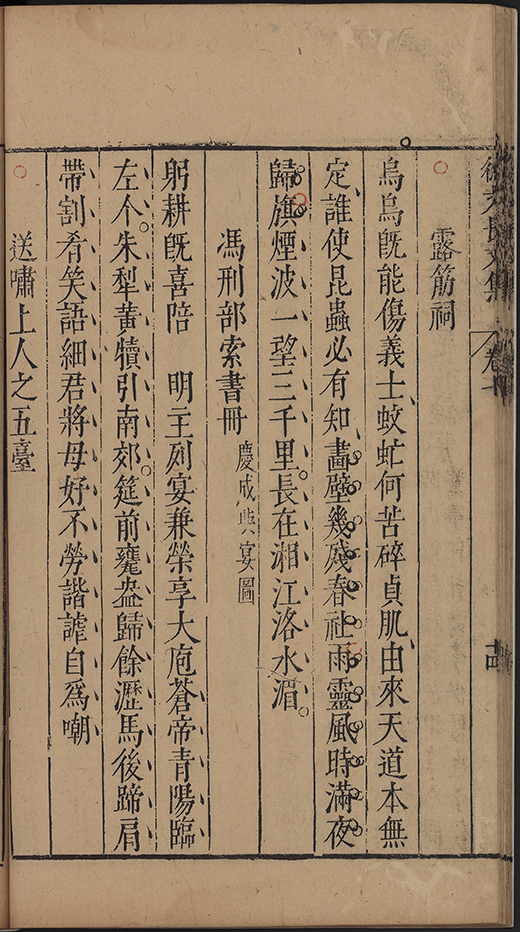 徐文長文集
卷七
露筋祠
烏鳥既能傷義士蚊虻何苦碎貞肌由來天道本無
定誰使昆蟲必有知畵壁幾殘春社雨靈風時滿夜
歸旗煙波一望三千里長在湘江洛水湄
馮刑部索書冊
慶成與宴圖
躬耕既喜陪　明主列宴兼榮享大庖蒼帝青陽臨
左个朱犁黄犢引南郊筵前甕盎歸餘瀝馬後蹄肩
帶割肴笑語細君將母好不勞諧謔自爲嘲
送嘯上人之五臺